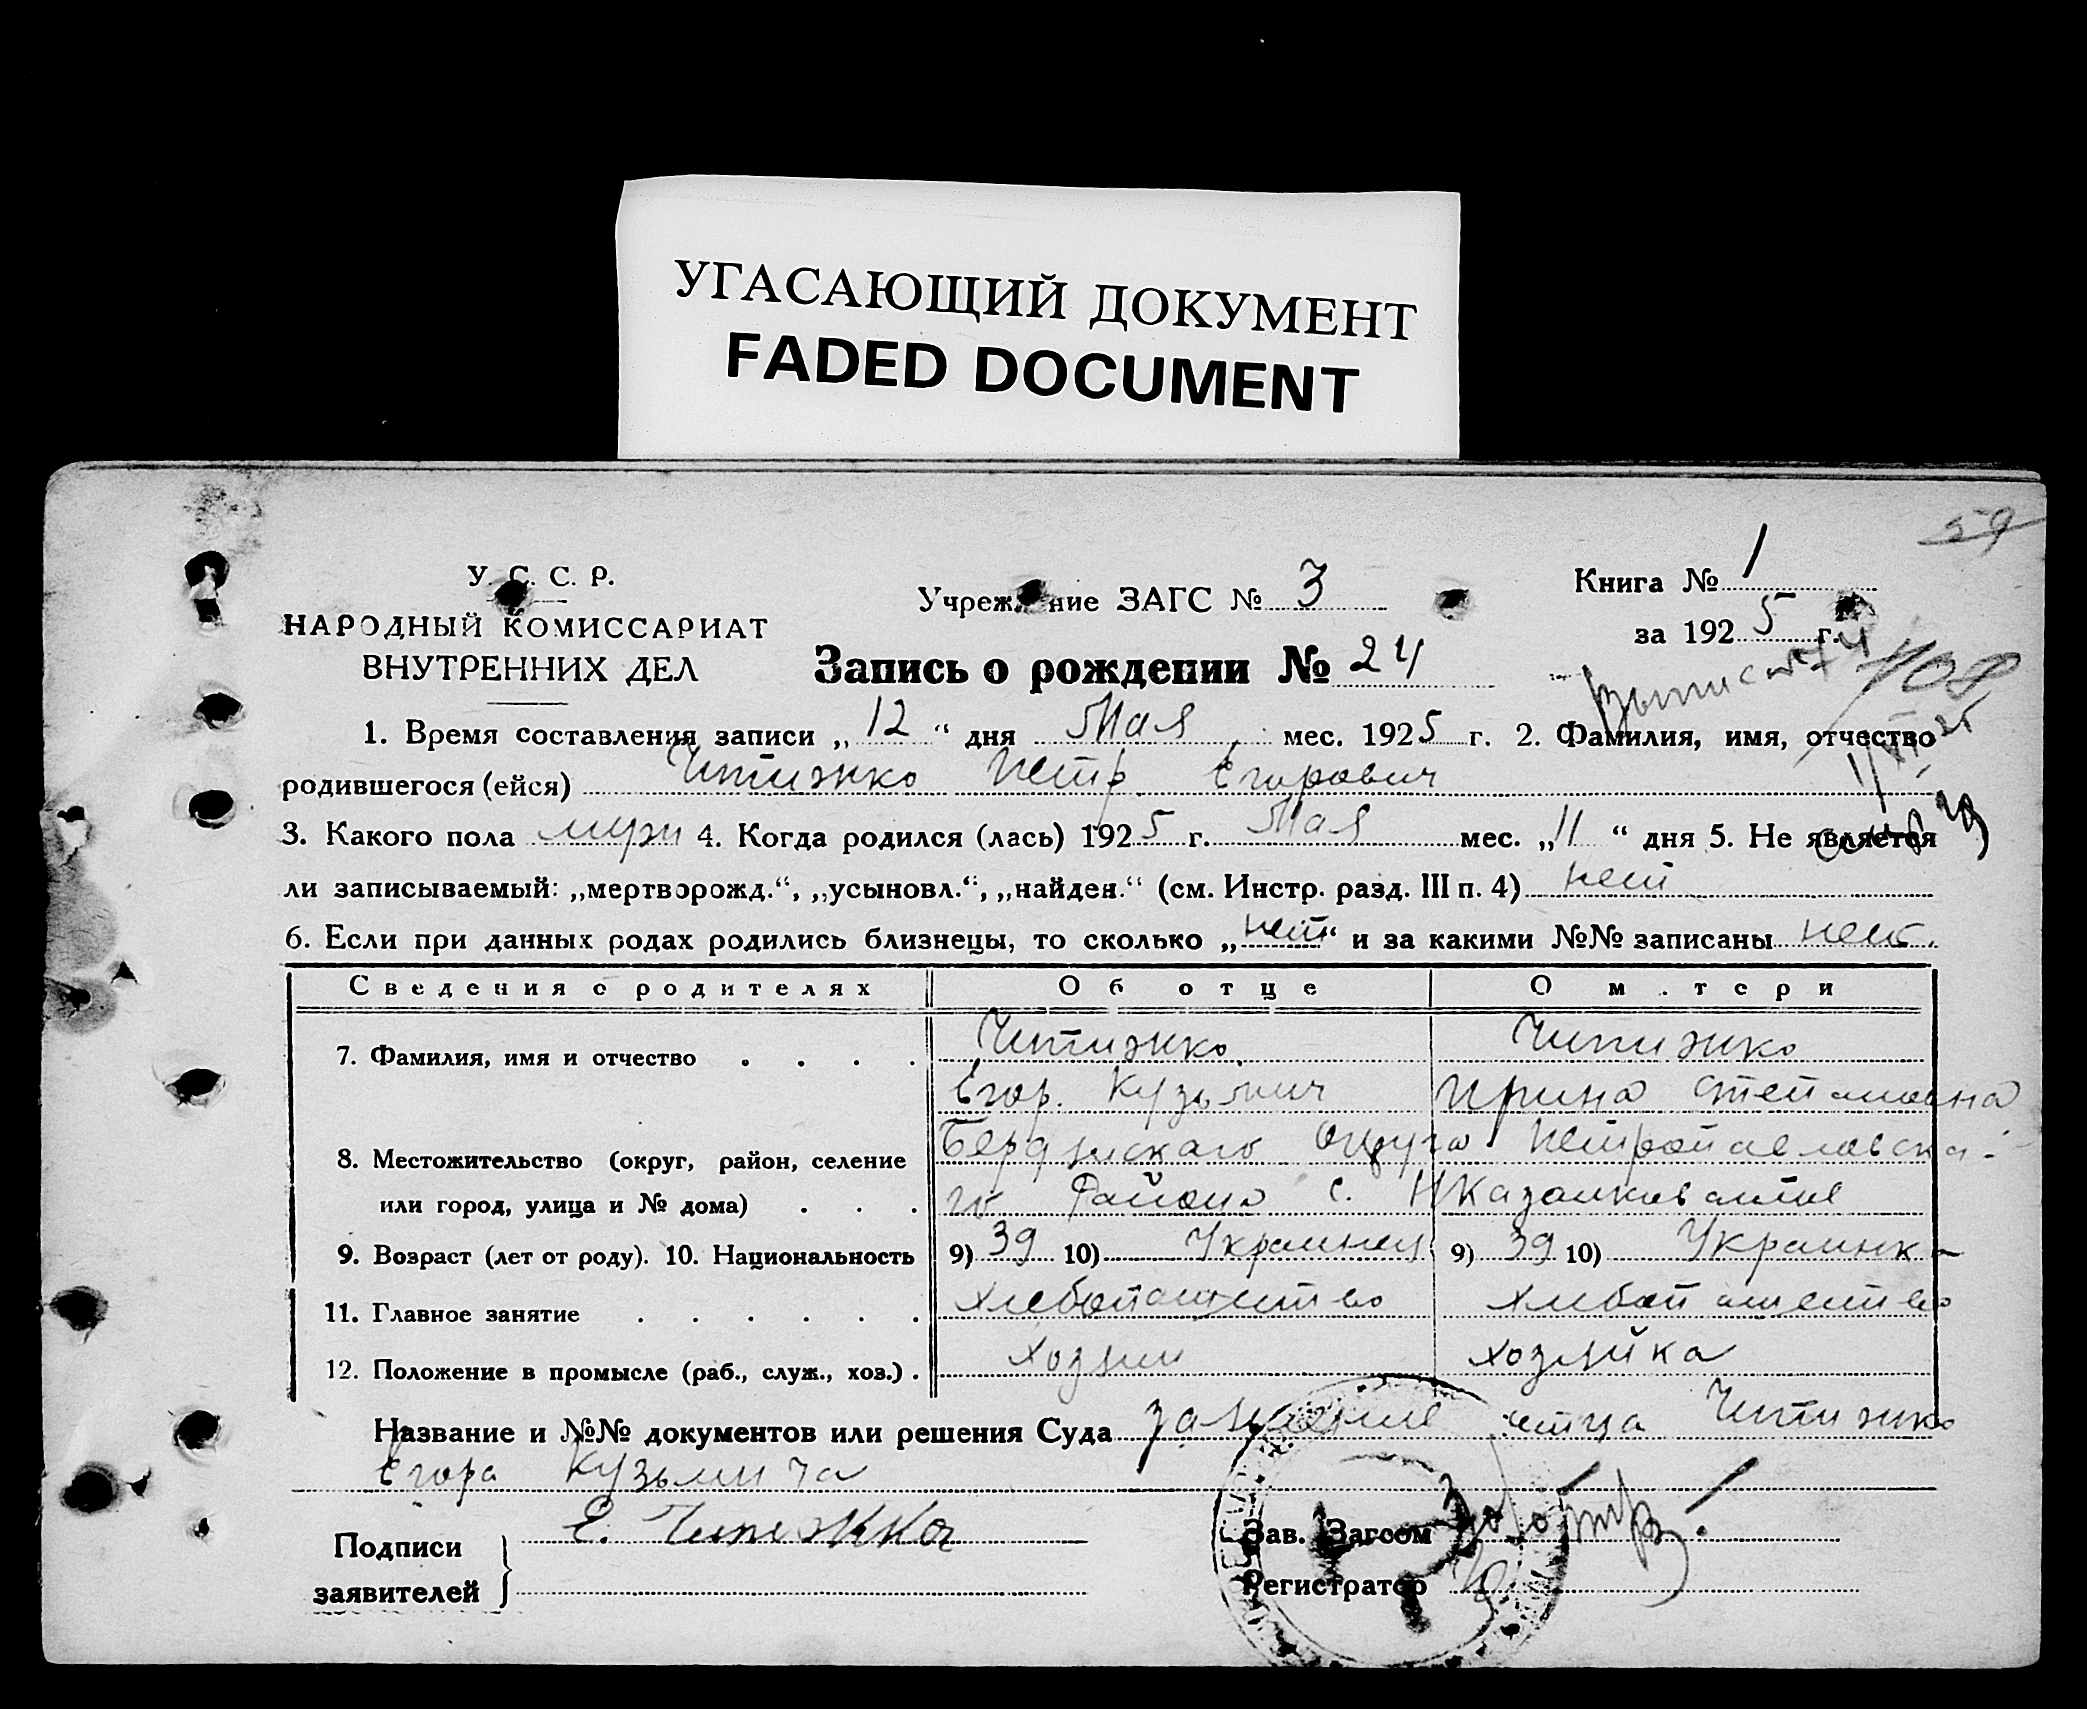 УГАСАЮЩИЙ ДОКУМЕНТ
FADED DOCUMENT
59
У. С. С. Р.
НАРОДНЫЙ КОМИССАРИАТ
ВНУТРЕННИХ ДЕЛ
Учреждение ЗАГС № 3
Книга № 1
за 1925 г.
Запись о рождении № 24
1. Время составления записи „12“ дня Мая мес. 1925 г. 2. Фамилия, имя, отчество
родившегося (ейся) Чипижко Петр Егорович
3. Какого пола муж 4. Когда родился (лась) 1925 г. Мая мес. „11“ дня 5. Не является
ли записываемый: „мертворожд.“, „усыновл.“, „найден.“ (см. Инстр. разд. III п. 4) нет
6. Если при данных родах родились близнецы, то сколько „нет“ и за какими №№ записаны нет.
Сведения о родителях Об отце О матери
7. Фамилия, имя и отчество . . . . Чипижко Чипижко
Егор. Кузьмич Ирина Степановна
8. Местожительство (округ, район, селение Бердянскаго Округа Петропавловска-
или город, улица и № дома) . . . го Района с. Н Казанковатое
9. Возраст (лет от роду). 10. Национальность 9) 39 10) Украинец 9) 39 10) Украинка
11. Главное занятие . . . . . . Хлебопашество Хлебопашество
12. Положение в промысле (раб., служ., хоз.) . хозяин хозяйка
Название и №№ документов или решения Суда заявление отца Чипижко
Егора Кузьмича
Подписи
заявителей
Е. Чипижко
Зав. Загсом
Регистратор